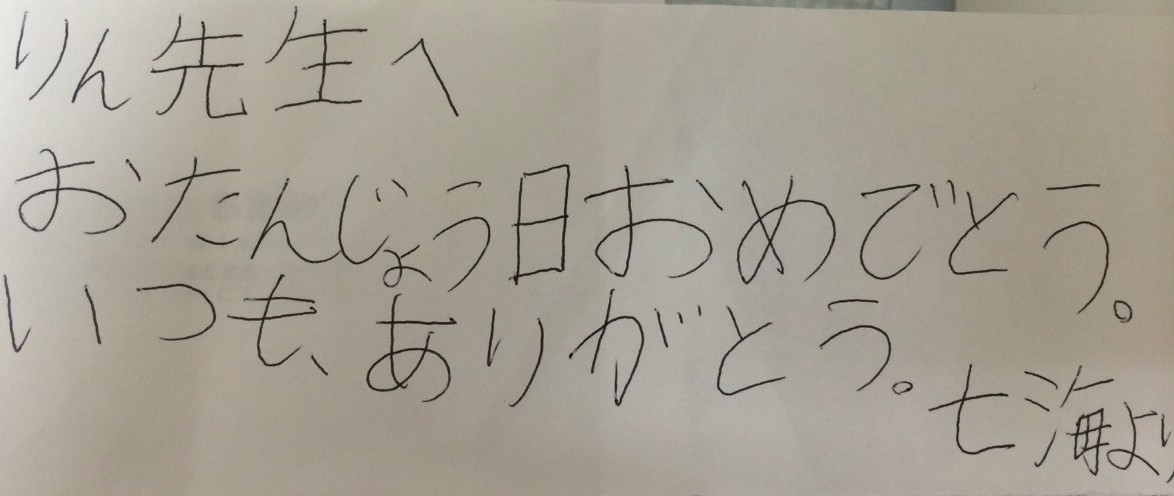 りん先生へ
おたんじょう日おめでとう。
いつも、ありがとう。
七海より